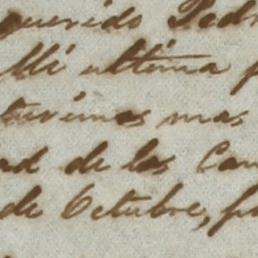 querido Pedr
Mi ultima p
tuvimos mas
ad de las Can
de Octubre, p